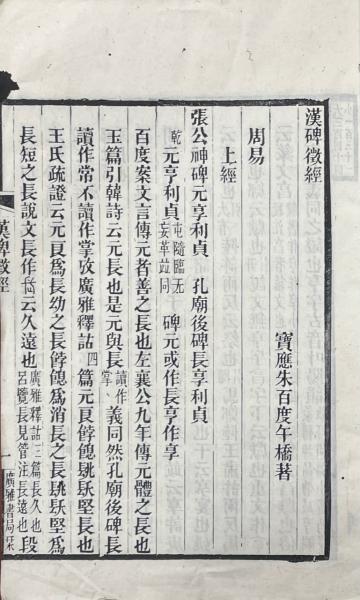 漢碑徵經
寶應朱百度午橋著
周易
上經
張公神碑元亨利貞 孔廟後碑長亨利貞
乾元亨利貞屯隨臨无妄革竝同 碑元或作長亨作享
百度案文言傳元者善之長也左襄公九年傳元體之長也
玉篇引韓詩云元長也是元與長讀作掌義同然孔廟後碑長
讀作常不讀作掌攷廣雅釋詁四篇元良
長也
王氏疏證云元良爲長幼之長
爲消長之長
堅爲
長短之長說文長作
云久遠也廣雅釋詁三篇長久也呂覽長見管注長遠也段
漢碑徵經
一
廣雅書局栞